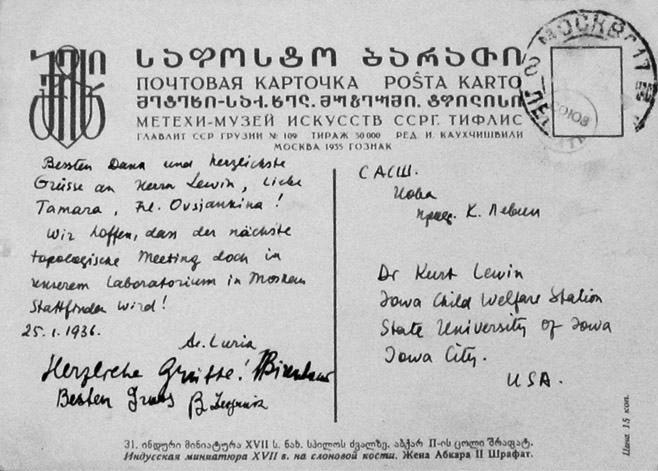 საფოსტო ბარათი
ПОЧТОВАЯ КАРТОЧКА POŜTA KARTO
მეტეხი-საქ. ხელ. მუზეუმი. ტფილისი
МЕТЕХИ-МУЗЕЙ ИСКУССТВ ССРГ. ТИФЛИС
ГЛАВЛИТ ССР ГРУЗИИ № 109 ТИРАЖ 30000 РЕД. И. КАУХЧИШВИЛИ
МОСКВА 1935 ГОЗНАК
МОСКВА 17
Bessten Dank und herzlichste
Grüsse an Herrn Lewin, liebe
Tamara, Fr. Ovsjankina!
Wir hoffen, dass der nächste
topologische Meeting doch in
unserem Laboratorium in Moskau
Stattfinden wird!
25.1.1936.
Al. Luria
Herzliche Grüsse!
Besten Gruss B.
САСШ.
Иова
проф. К. Левин
Dr Kurt Lewin
Iowa Child Welfare Station
State University of Iowa
Iowa City.
USA.
31. ინდური მინიატურა XVII ს. ნახ. სპილოს ძვალზე. აბქარ II-ის ცოლი შრაფატ.
Индусская миниатюра XVII в. на слоновой кости. Жена Абкара II Шрафат.
Цена 15 коп.